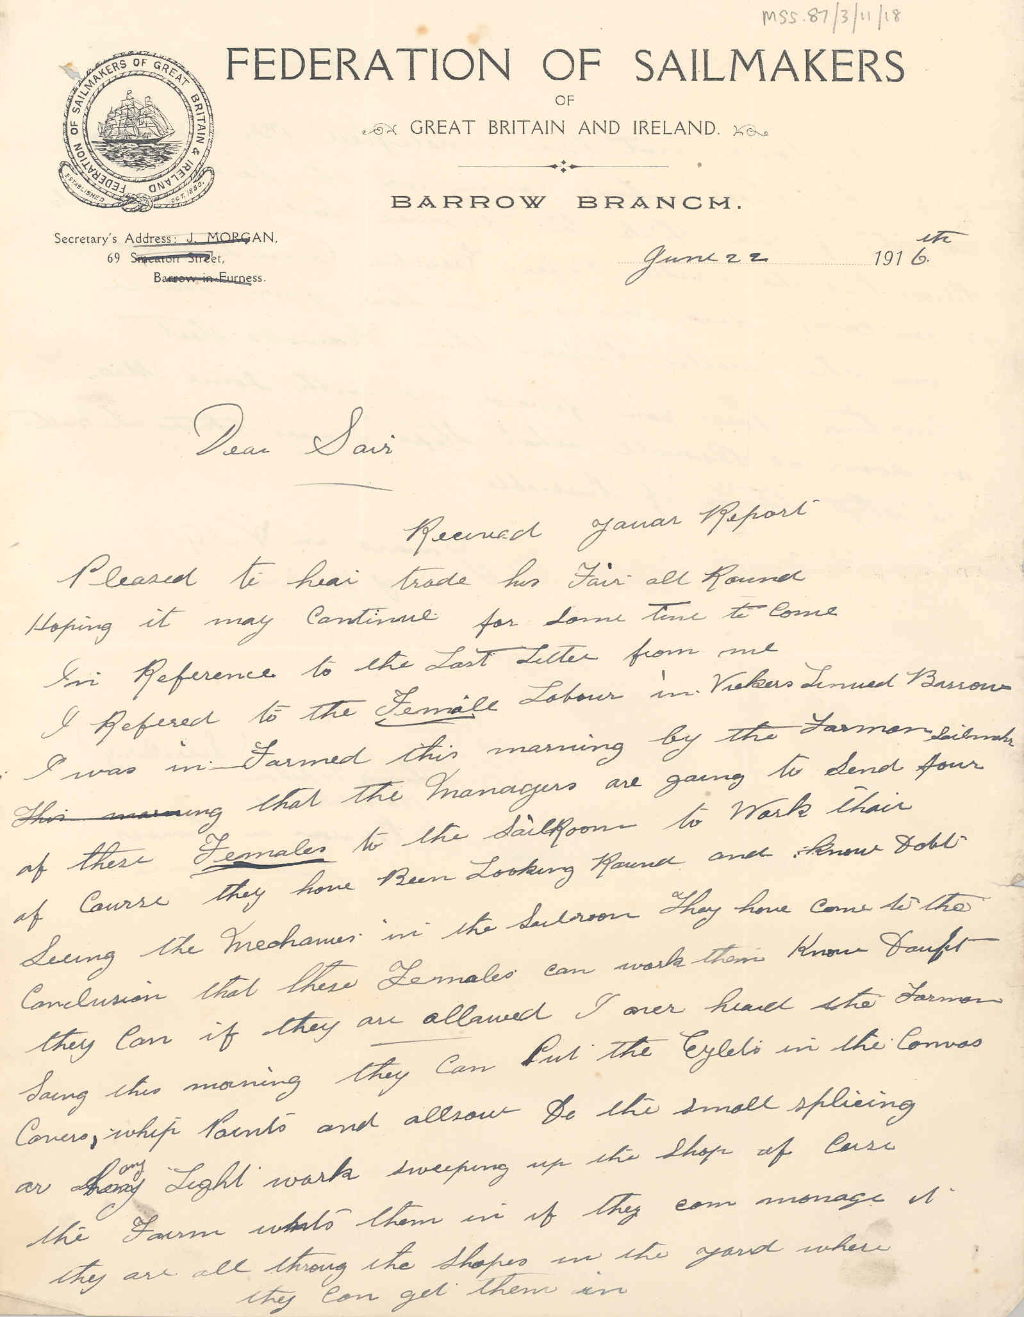 MSS.87/3/11/18
FEDERATION OF SAILMAKERS
OF
GREAT BRITAIN AND IRELAND.
FEDERATION OF SAILMAKERS OF GREAT BRITAIN & IRELAND
ESTABLISHED
BARROW BRANCH.
Secretary's Address: J. MORGAN,
69 Smeaton Street,
Barrow-in-Furness.
June 22th 1916.
Dear Sair
Received youar Report
Pleased to hear trade his Fair all Round
Hoping it may Continue for some time to Come
In Reference to the Last Letter from me
I Refered to the Female Labour in Vickers Limited Barrow
I was in-Farmed this marning by the Farman Sailmakr
This marning that the Managers are going to Send four
of these Females to the SailRoom to Work thair
of Caurse they have Been Looking Round and know Dobt
Seeing the Mechanies in the Sailroom They have Come to the
Conclusion that these Females can work them Know Daupt
they Can if they are allawed I over heard the Farman
Saing this marning they Can Put the Eylets in the Canvas
Cavers, whip Paints and allsow Do the small splicing
ar any Light work sweeping up the Shop of Carse
the Fairm whats them in if they can manage it
they are all throug the shapes in the yard where
they can get them in